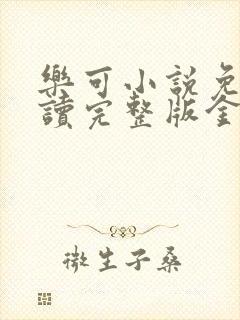 樂可小說免
讀完整版全
微生子桑